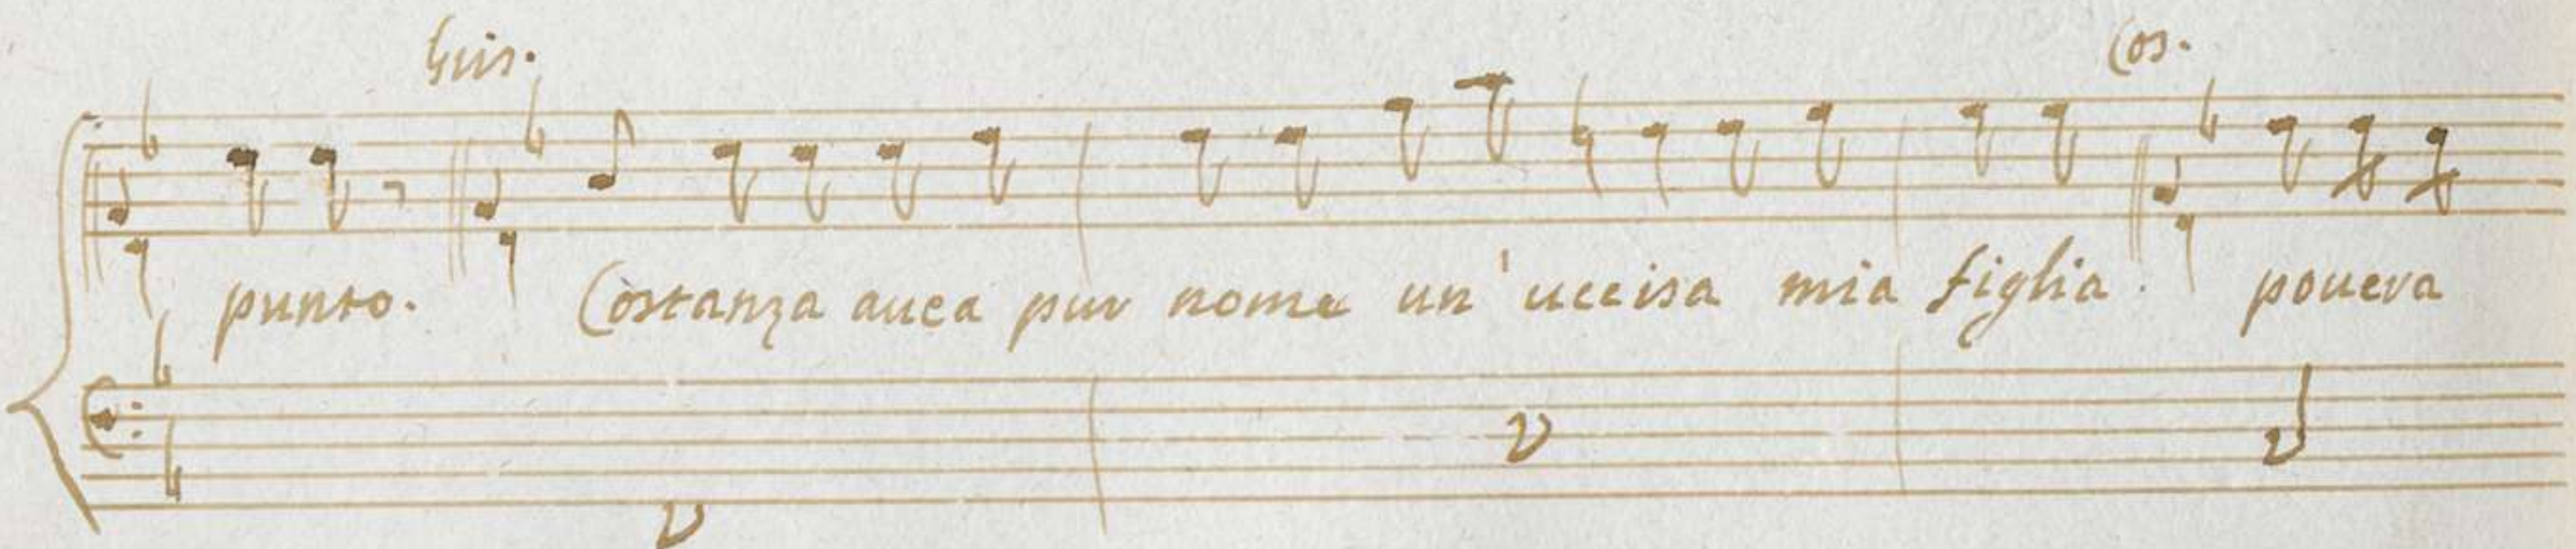 Gris. Cos.
punto. Costanza auea pur nome un'uccisa mia figlia. pouera